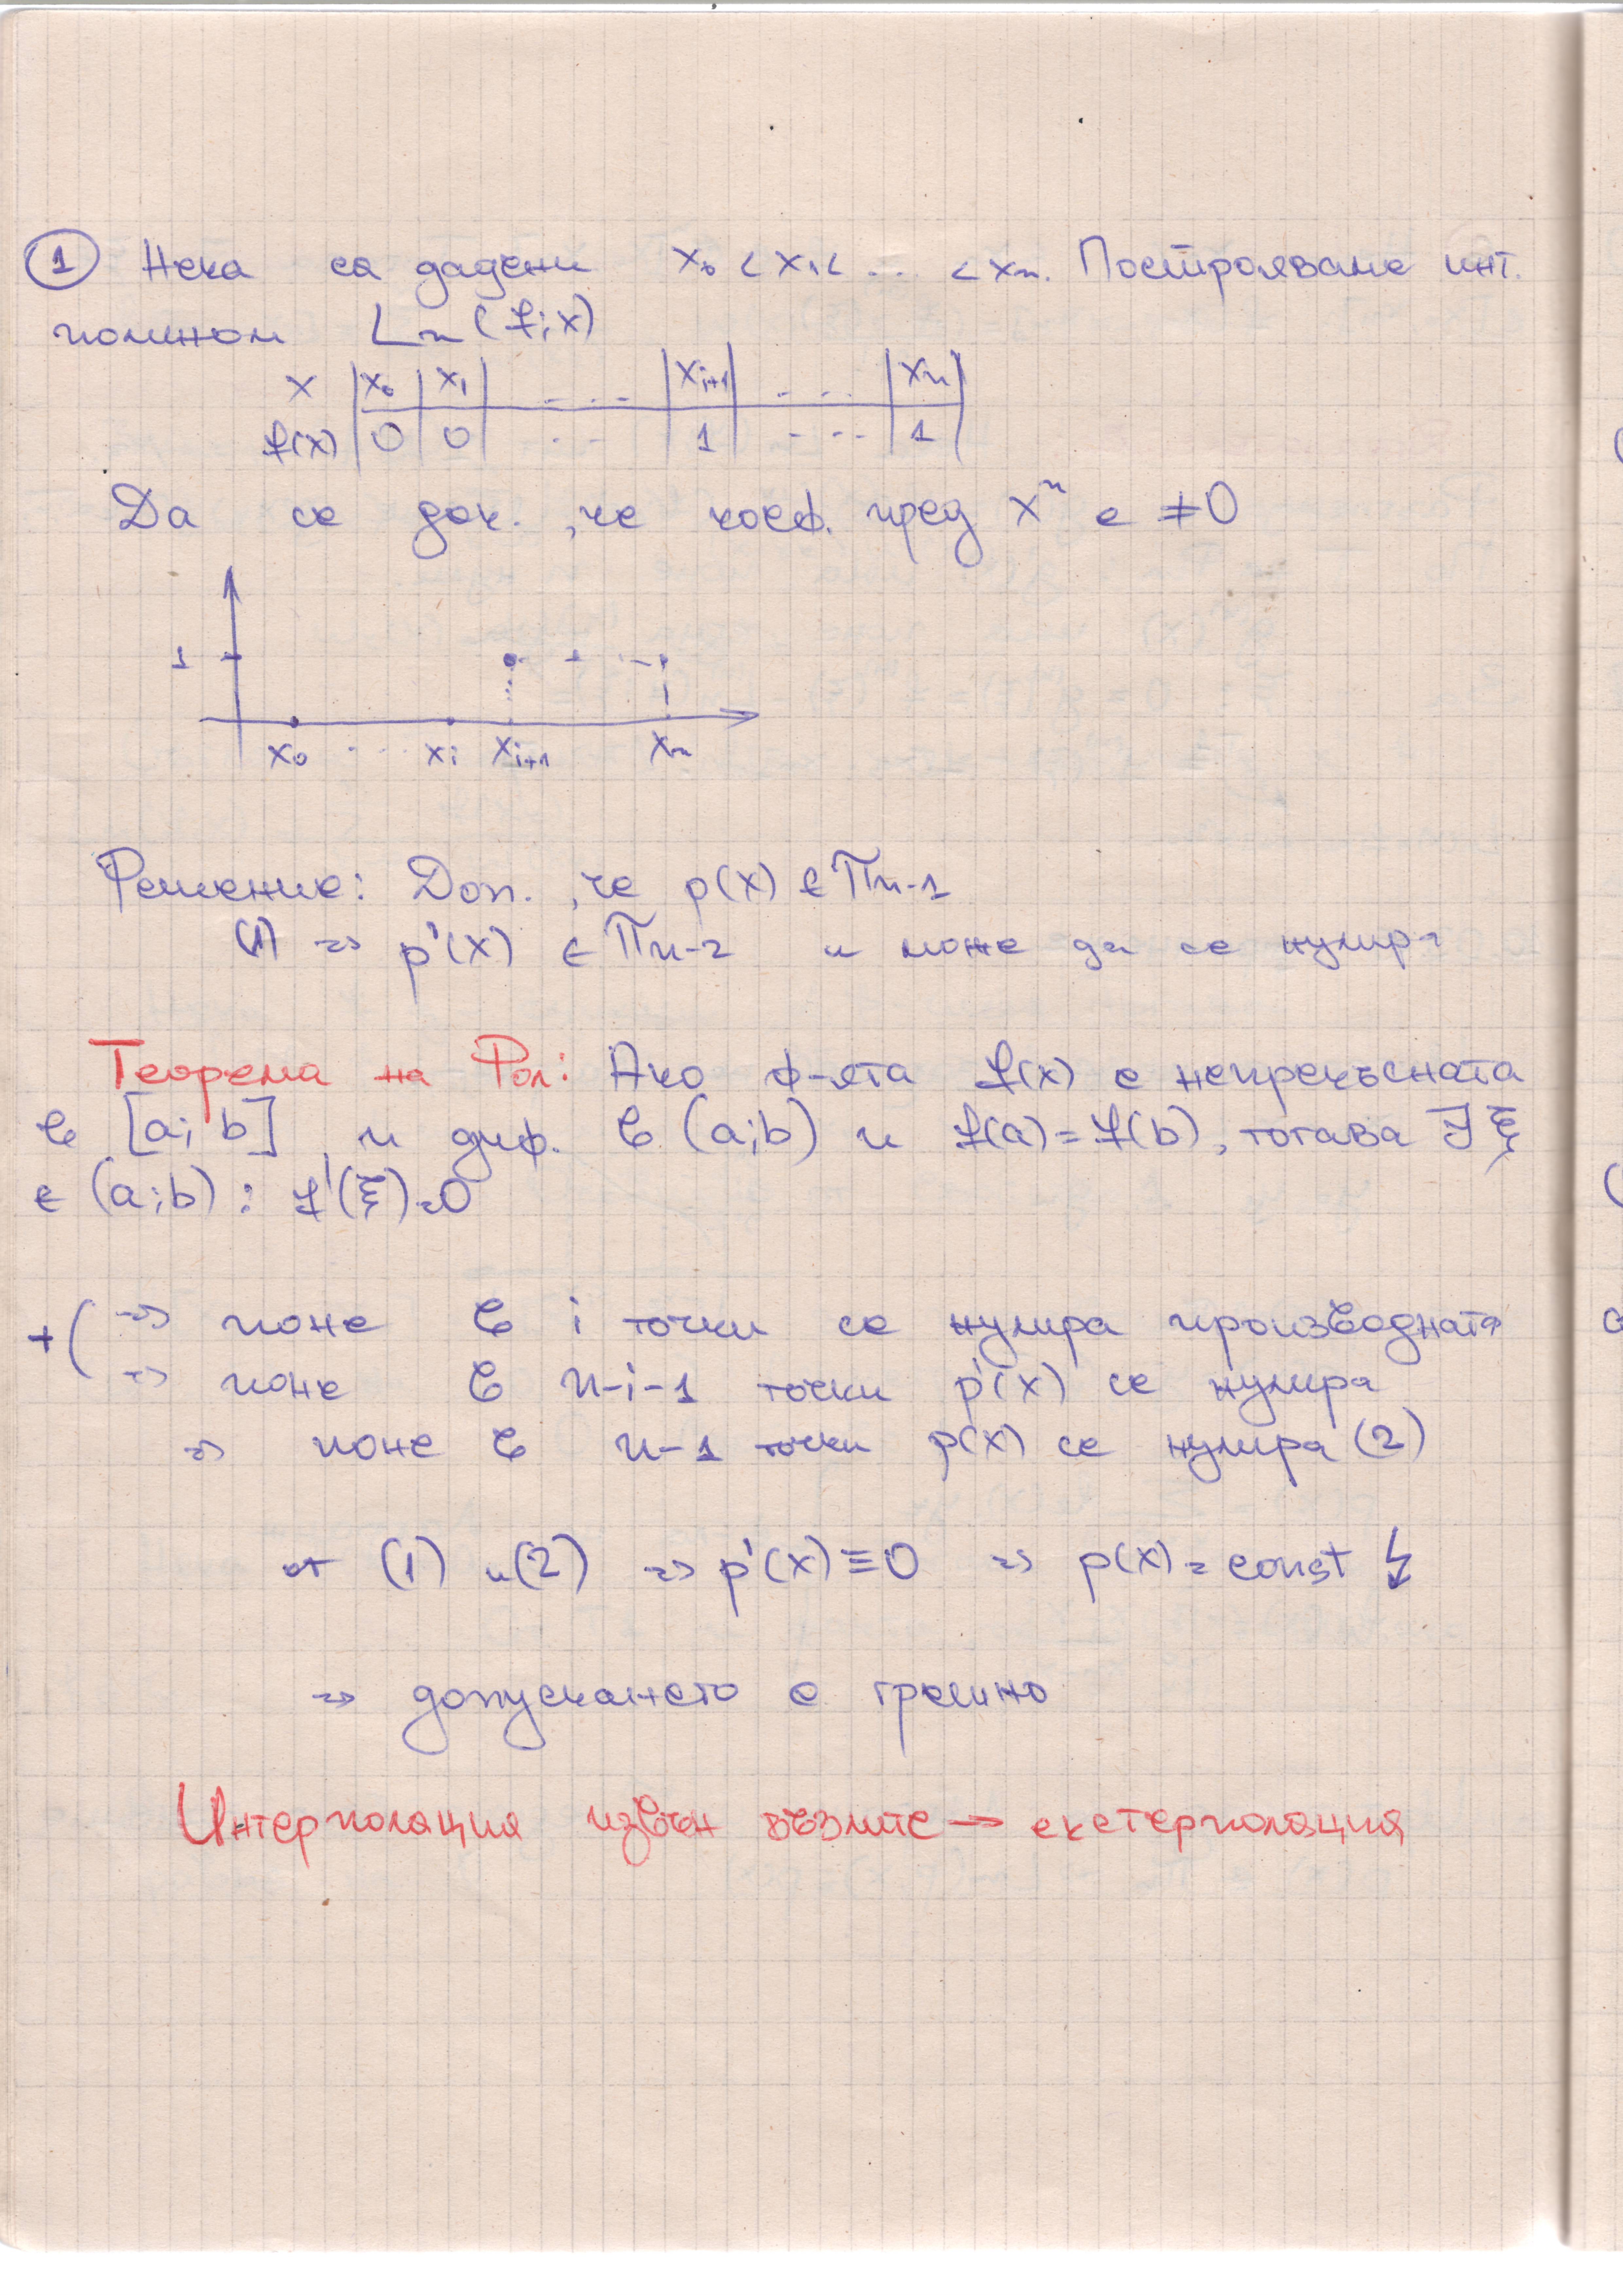 1 Нека са дадени x₀ < x₁ < ... < xₙ. Построяваме инт.
полином Lₙ(f;x)
x | x₀ | x₁ | ... | xᵢ₊₁ | ... | xₙ |
f(x) | 0 | 0 | ... | 1 | ... | 1 |
Да се док., че коеф. пред xⁿ е ≠0
1
x₀ ... xᵢ xᵢ₊₁ xₙ
Решение: Доп., че p(x) ∈ Πₙ₋₁
(1) => p'(x) ∈ Πₙ₋₂ и може да се нулира
Теорема на Рол: Ако ф-ята f(x) е непрекъсната
в [a;b] и диф. в (a;b) и f(a)=f(b), тогава ∃ ξ
∈ (a;b): f'(ξ)=0
+( => поне в i точки се нулира производната
=> поне в n-i-1 точки p'(x) се нулира
=> поне в n-1 точки p(x) се нулира (2)
от (1) и (2) => p'(x)≡0 => p(x)=const ↯
=> допускането е грешно
Интерполация извън възлите → екстерполация